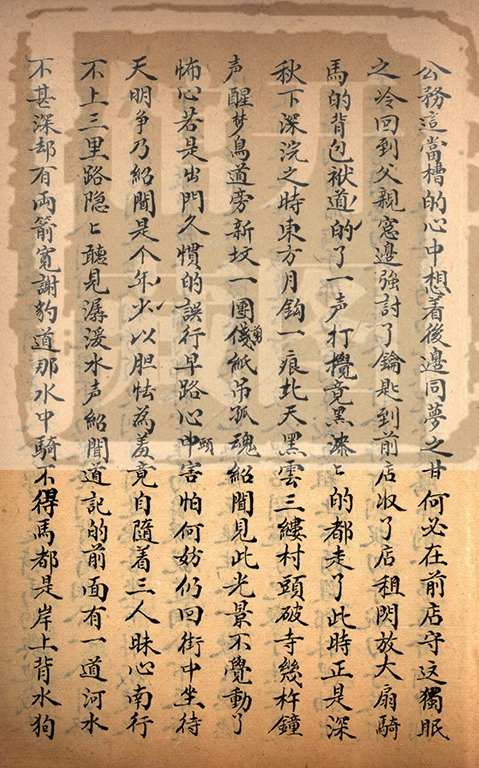 公務這當槽的心中想着後邊同夢之甘何必在前店守这獨眠
之冷回到父親窓邊強討了鑰匙到前店收了店租閃放大扇騎
馬的背包袱道的了一声打攪竟黑漆〻的都走了此時正是深
秋下深浣之時東方月鈎一痕北天黑雲三縷村頭破寺幾杵鐘
声醒梦鳥道旁新坟一團僟剪紙吊孤魂紹聞見此光景不覺動了
怖心若是出門久慣的誤行早路心中頭害怕何妨仍回街中坐待
天明争乃紹聞是个年少以胆怯為羞竟自隨着三人昧心南行
不上三里路隐〻聽見潺湲水声紹聞道記的前面有一道河水
不甚深却有両箭寛謝豹道那水中騎不得馬都是岸上背水狗